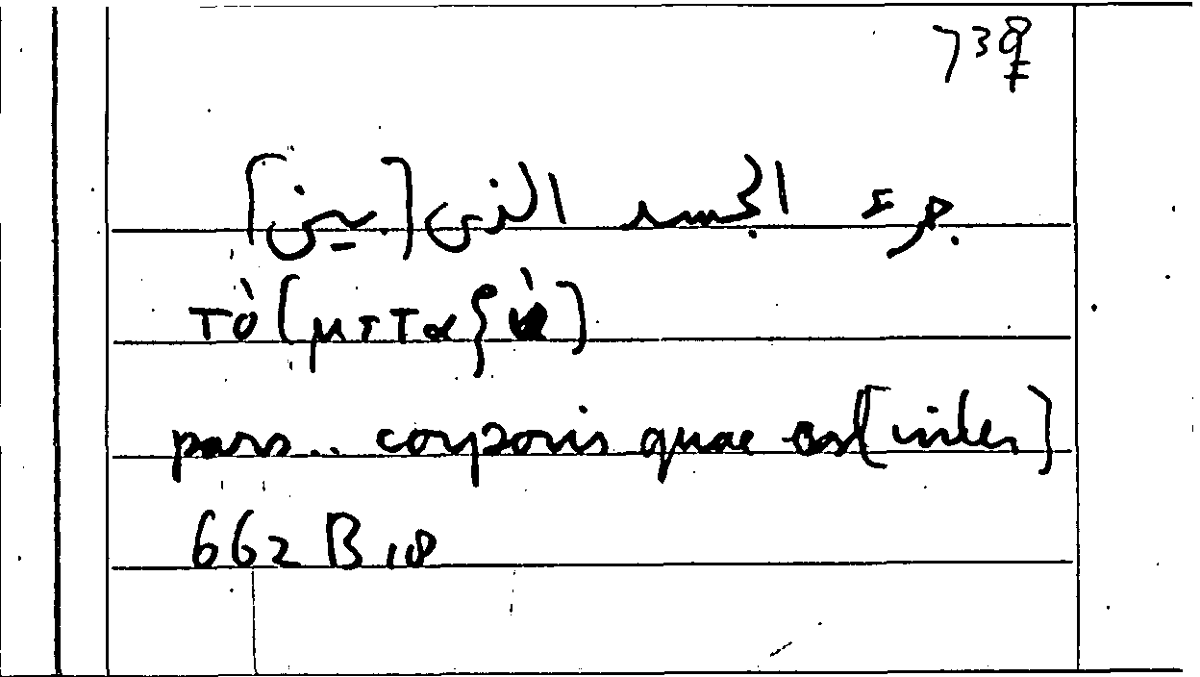 جزء الجسد الذى [بين]
τὸ [μεταξὺ]
pars.. corporis quae est [inter]
662 B 18